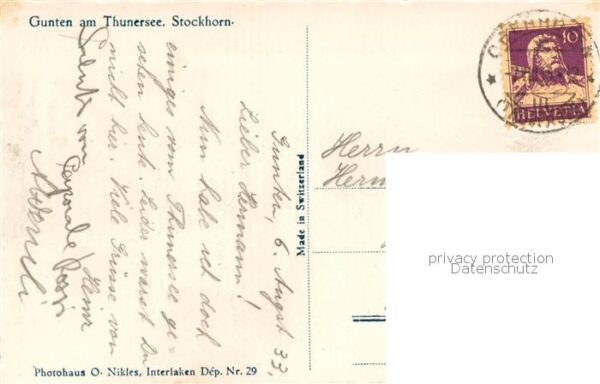 Gunten am Thunersee. Stockhorn.
10
HELVETIA
Gunten, 6. August 33.
Lieber Hermann!
Nun habe ich doch
einiges vom Thunersee ge-
sehen heute. Leider warst Du
nicht hier. Viele Grüsse von
Heinz
Made in Switzerland
Herrn
Herm
privacy protection
Datenschutz
Photohaus O. Nikles, Interlaken Dép. Nr. 29